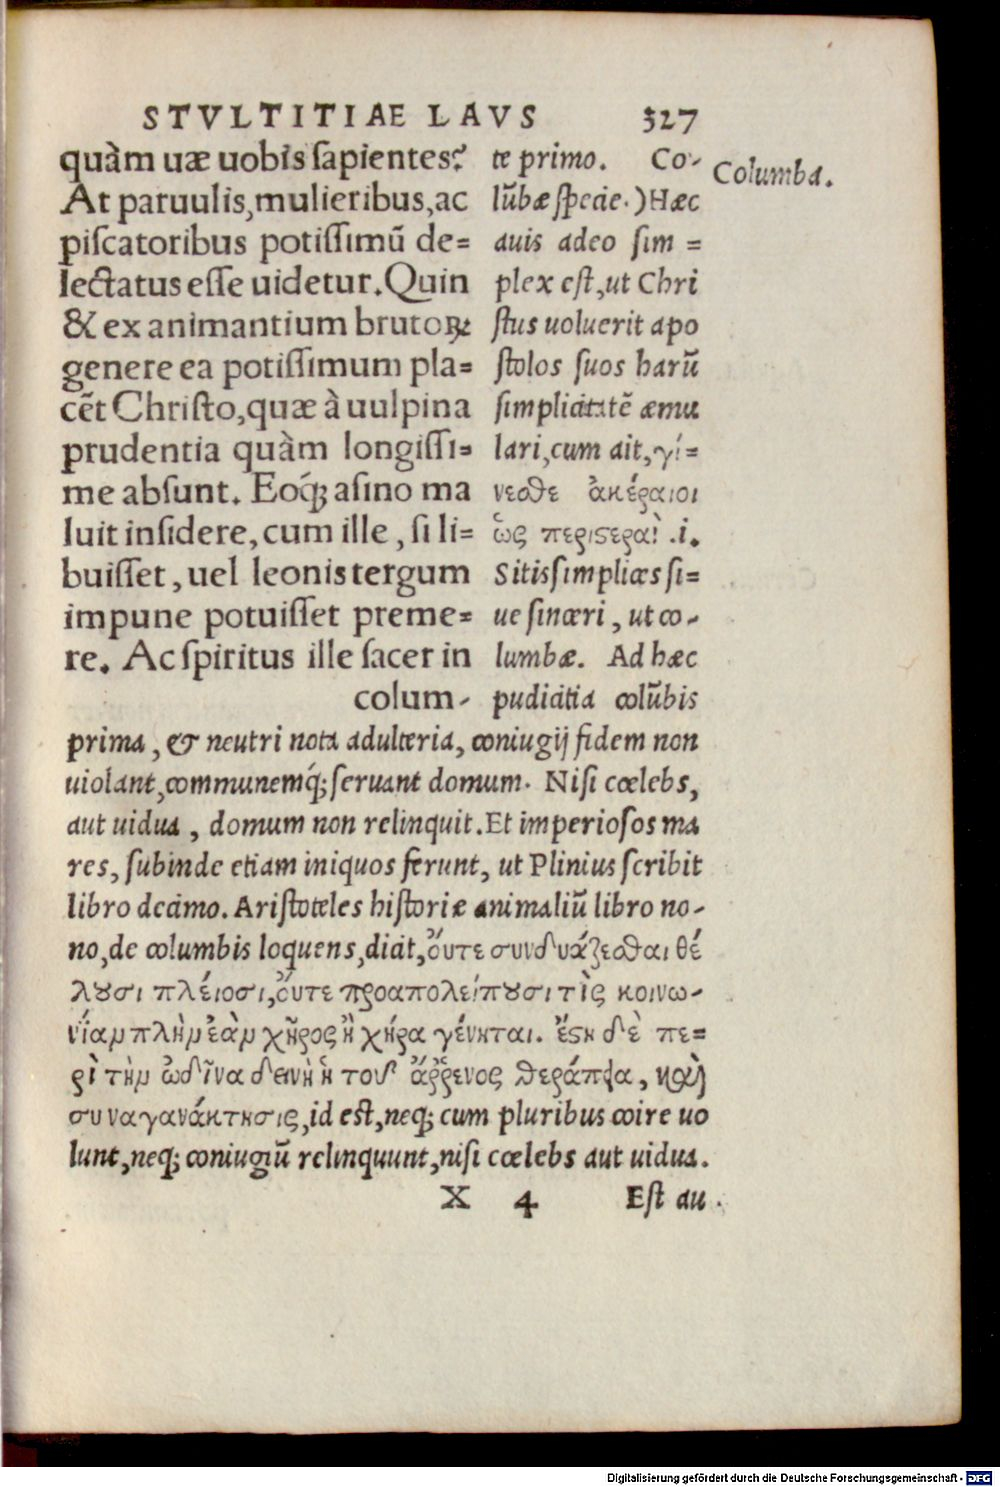 STVLTITIAE LAVS 327
quàm uæ uobis sapientes?
At paruulis, mulieribus, ac
piscatoribus potissimũ de=
lectatus esse uidetur. Quin
& ex animantium brutoꝝ
genere ea potissimum pla=
cẽt Christo, quæ à uulpina
prudentia quàm longissi=
me absunt. Eoq́; asino ma
luit insidere, cum ille, si li=
buisset, uel leonis tergum
impune potuisset preme=
re. Ac spiritus ille sacer in
colum-
te primo. Co-
lũbæ specie.) Hæc
auis adeo sim =
plex est, ut Chri
stus uoluerit apo
stolos suos harũ
simplicitatẽ æmu
lari, cum ait, γί=
νεσθε ἀκέραιοι
ὡς περιϛεραὶ .i.
Sitis simplices si=
ue sinceri, ut co-
lumbæ. Ad hæc
pudicitia colũbis
Columba.
prima, & neutri nota adulteria, coniugij fidem non
uiolant, communemq́; seruant domum. Nisi cœlebs,
aut uidua, domum non relinquit. Et imperiosos ma
res, subinde etiam iniquos ferunt, ut Plinius scribit
libro decimo. Aristoteles historiæ animaliũ libro no-
no, de columbis loquens, dicit, ὄυτε συνδυάζεσθαι θέ
λȣσι πλέιοσι, ὄυτε προαπολείπȣσι τὶς κοινω-
νίαν πλὴν ἐὰν χῆρος ἢ χήρα γένηται. ἔϛη δὲ πε=
ρὶ τὴν ὠδῖνα δεινὴ ἡ τοῦ ἄῤῥενος θεράπεια, καὶ
συναγανάκτησις, id est, neq; cum pluribus coire uo
lunt, neq; coniugiũ relinquunt, nisi cœlebs aut uidua.
X 4 Est au
Digitalisierung gefördert durch die Deutsche Forschungsgemeinschaft - DFG